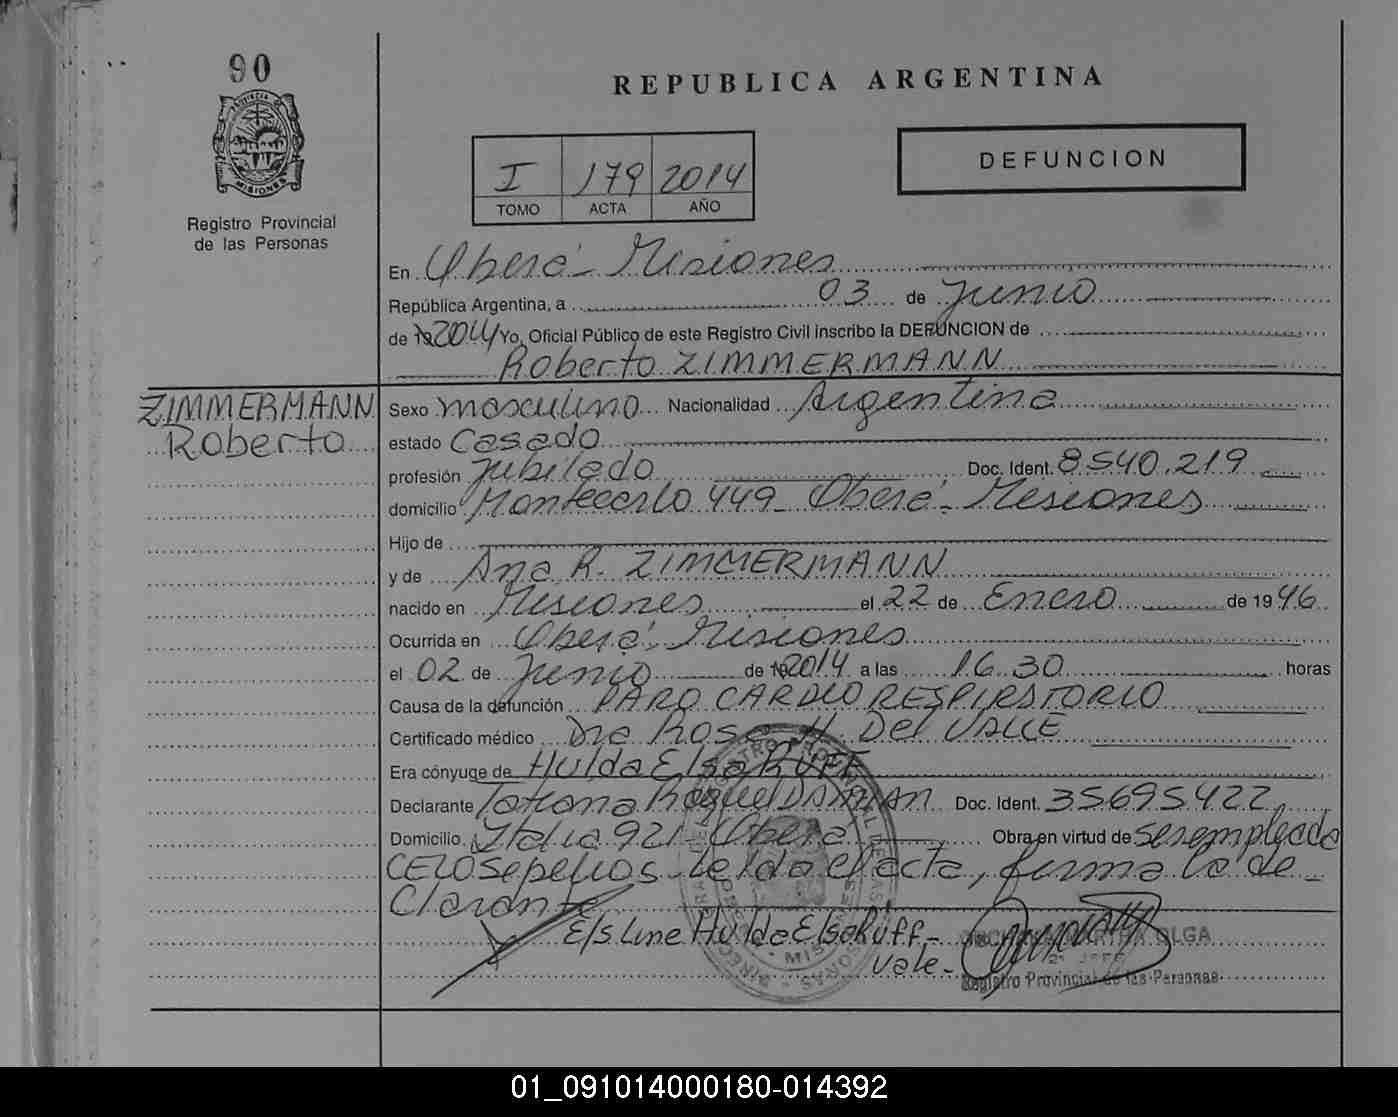 90
PROVINCIA DE
MISIONES
Registro Provincial
de las Personas
REPUBLICA ARGENTINA
I 179 2014
TOMO ACTA AÑO
DEFUNCION
En Oberá - Misiones
República Argentina, a 03 de Junio
de 19 2014 Yo, Oficial Público de este Registro Civil inscribo la DEFUNCION de
Roberto ZIMMERMANN
ZIMMERMANN
Roberto
Sexo masculino Nacionalidad Argentina
estado Casado
profesión Jubilado Doc. Ident. 8540.219
domicilio Montecarlo 449 - Oberá - Misiones
Hijo de
y de Ana R. ZIMMERMANN
nacido en Misiones el 22 de Enero de 1946
Ocurrida en Oberá - Misiones
el 02 de Junio de 19 2014 a las 16.30 horas
Causa de la defunción PARO CARDIO RESPIRATORIO
Certificado médico Dra Rosa H. Del VALLE
Era cónyuge de Hulda Elsa RUFF
Declarante Tatiana Raquel DAMIAN Doc. Ident. 35695422
Domicilio Italia 921 - Oberá Obra en virtud de ser empleada
CELO Sepelios - Leida el acta, firma la de-
clarante
E/s Line Hulda Elsa Ruff -
vale -
OLGA
Registro Provincial de las Personas
01_091014000180-014392